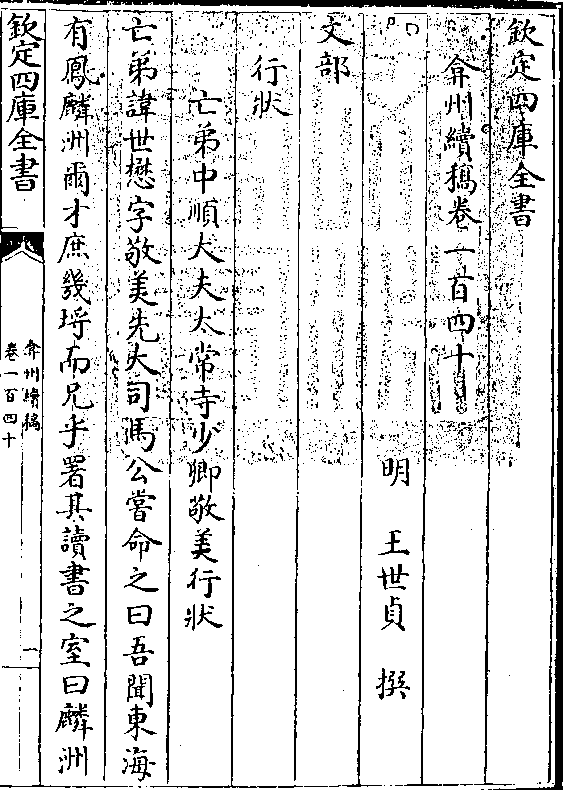 欽定四庫全書
弇州續稿卷一百四十
明 王世貞 撰
文部
行狀
亡弟中順大夫太常寺少卿敬美行狀
亡弟諱世懋字敬美先大司馬公嘗命之曰吾聞東海
有鳳麟洲爾才庶幾埒而兄乎署其讀書之室曰麟洲
欽定四庫全書
弇州續稿
卷一百四十
一